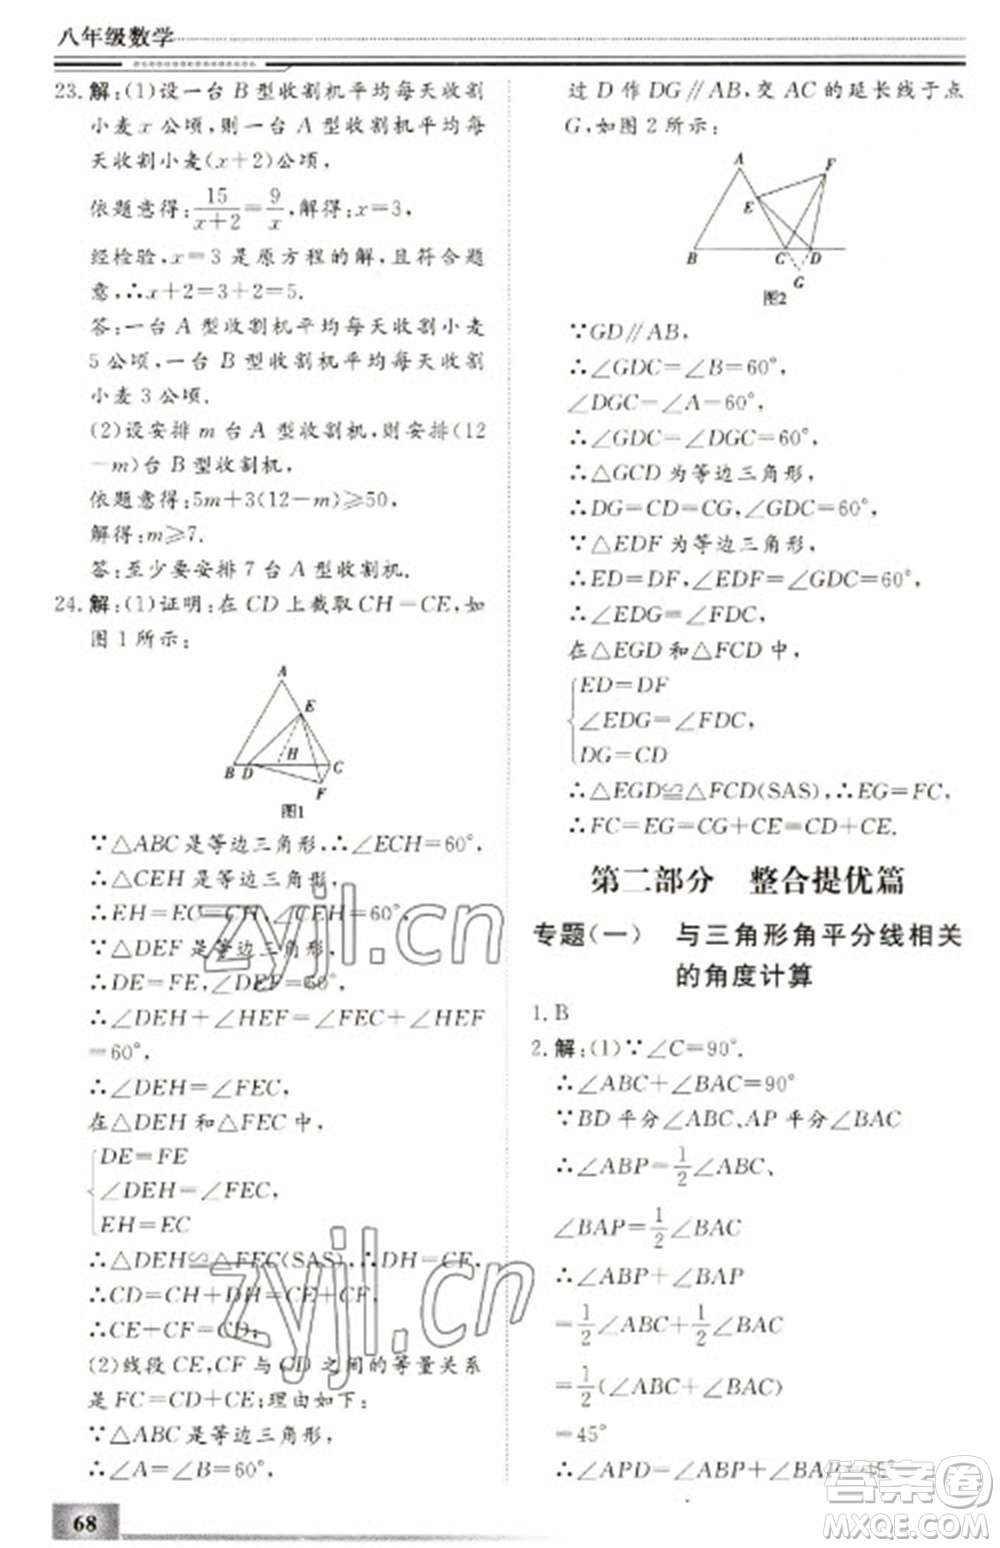 八年级数学
23. 解:(1)设一台 B 型收割机平均每天收割
小麦 x 公顷,则一台 A 型收割机平均每
天收割小麦(x+2)公顷,
依题意得:15/(x+2)=9/x,解得:x=3,
经检验,x=3 是原方程的解,且符合题
意,∴x+2=3+2=5.
答:一台 A 型收割机平均每天收割小麦
5 公顷,一台 B 型收割机平均每天收割
小麦 3 公顷.
(2)设安排 m 台 A 型收割机,则安排(12
-m)台 B 型收割机,
依题意得:5m+3(12-m)≥50,
解得:m≥7.
答:至少要安排 7 台 A 型收割机.
24. 解:(1)证明:在 CD 上截取 CH=CE,如
图 1 所示:
A
E
B D H C
F
图1
∵△ABC 是等边三角形,∴∠ECH=60°,
∴△CEH 是等边三角形,
∴EH=EC=CH,∠CEH=60°,
∵△DEF 是等边三角形,
∴DE=FE,∠DEF=60°,
∴∠DEH+∠HEF=∠FEC+∠HEF
=60°,
∴∠DEH=∠FEC,
在△DEH 和△FEC 中,
DE=FE
∠DEH=∠FEC,
EH=EC
∴△DEH≌△FEC(SAS),∴DH=CF,
∴CD=CH+DH=CE+CF,
∴CE+CF=CD;
(2)线段 CE,CF 与 CD 之间的等量关系
是 FC=CD+CE;理由如下:
∵△ABC 是等边三角形,
∴∠A=∠B=60°,
68
过 D 作 DG∥AB,交 AC 的延长线于点
G,如图 2 所示:
A F
E
B C D
G
图2
∵GD∥AB,
∴∠GDC=∠B=60°,
∠DGC=∠A=60°,
∴∠GDC=∠DGC=60°,
∴△GCD 为等边三角形,
∴DG=CD=CG,∠GDC=60°,
∵△EDF 为等边三角形,
∴ED=DF,∠EDF=∠GDC=60°,
∴∠EDG=∠FDC,
在△EGD 和△FCD 中,
ED=DF
∠EDG=∠FDC,
DG=CD
∴△EGD≌△FCD(SAS),∴EG=FC,
∴FC=EG=CG+CE=CD+CE.
第二部分 整合提优篇
专题(一) 与三角形角平分线相关
的角度计算
1. B
2. 解:(1)∵∠C=90°.
∴∠ABC+∠BAC=90°
∵BD 平分∠ABC、AP 平分∠BAC
∴∠ABP=1/2∠ABC、
∠BAP=1/2∠BAC
∴∠ABP+∠BAP
=1/2∠ABC+1/2∠BAC
=1/2(∠ABC+∠BAC)
=45°
∴∠APD=∠ABP+∠BAP=45°
zyjl.cn
zyjl.cn
答案圈
MXQE.COM